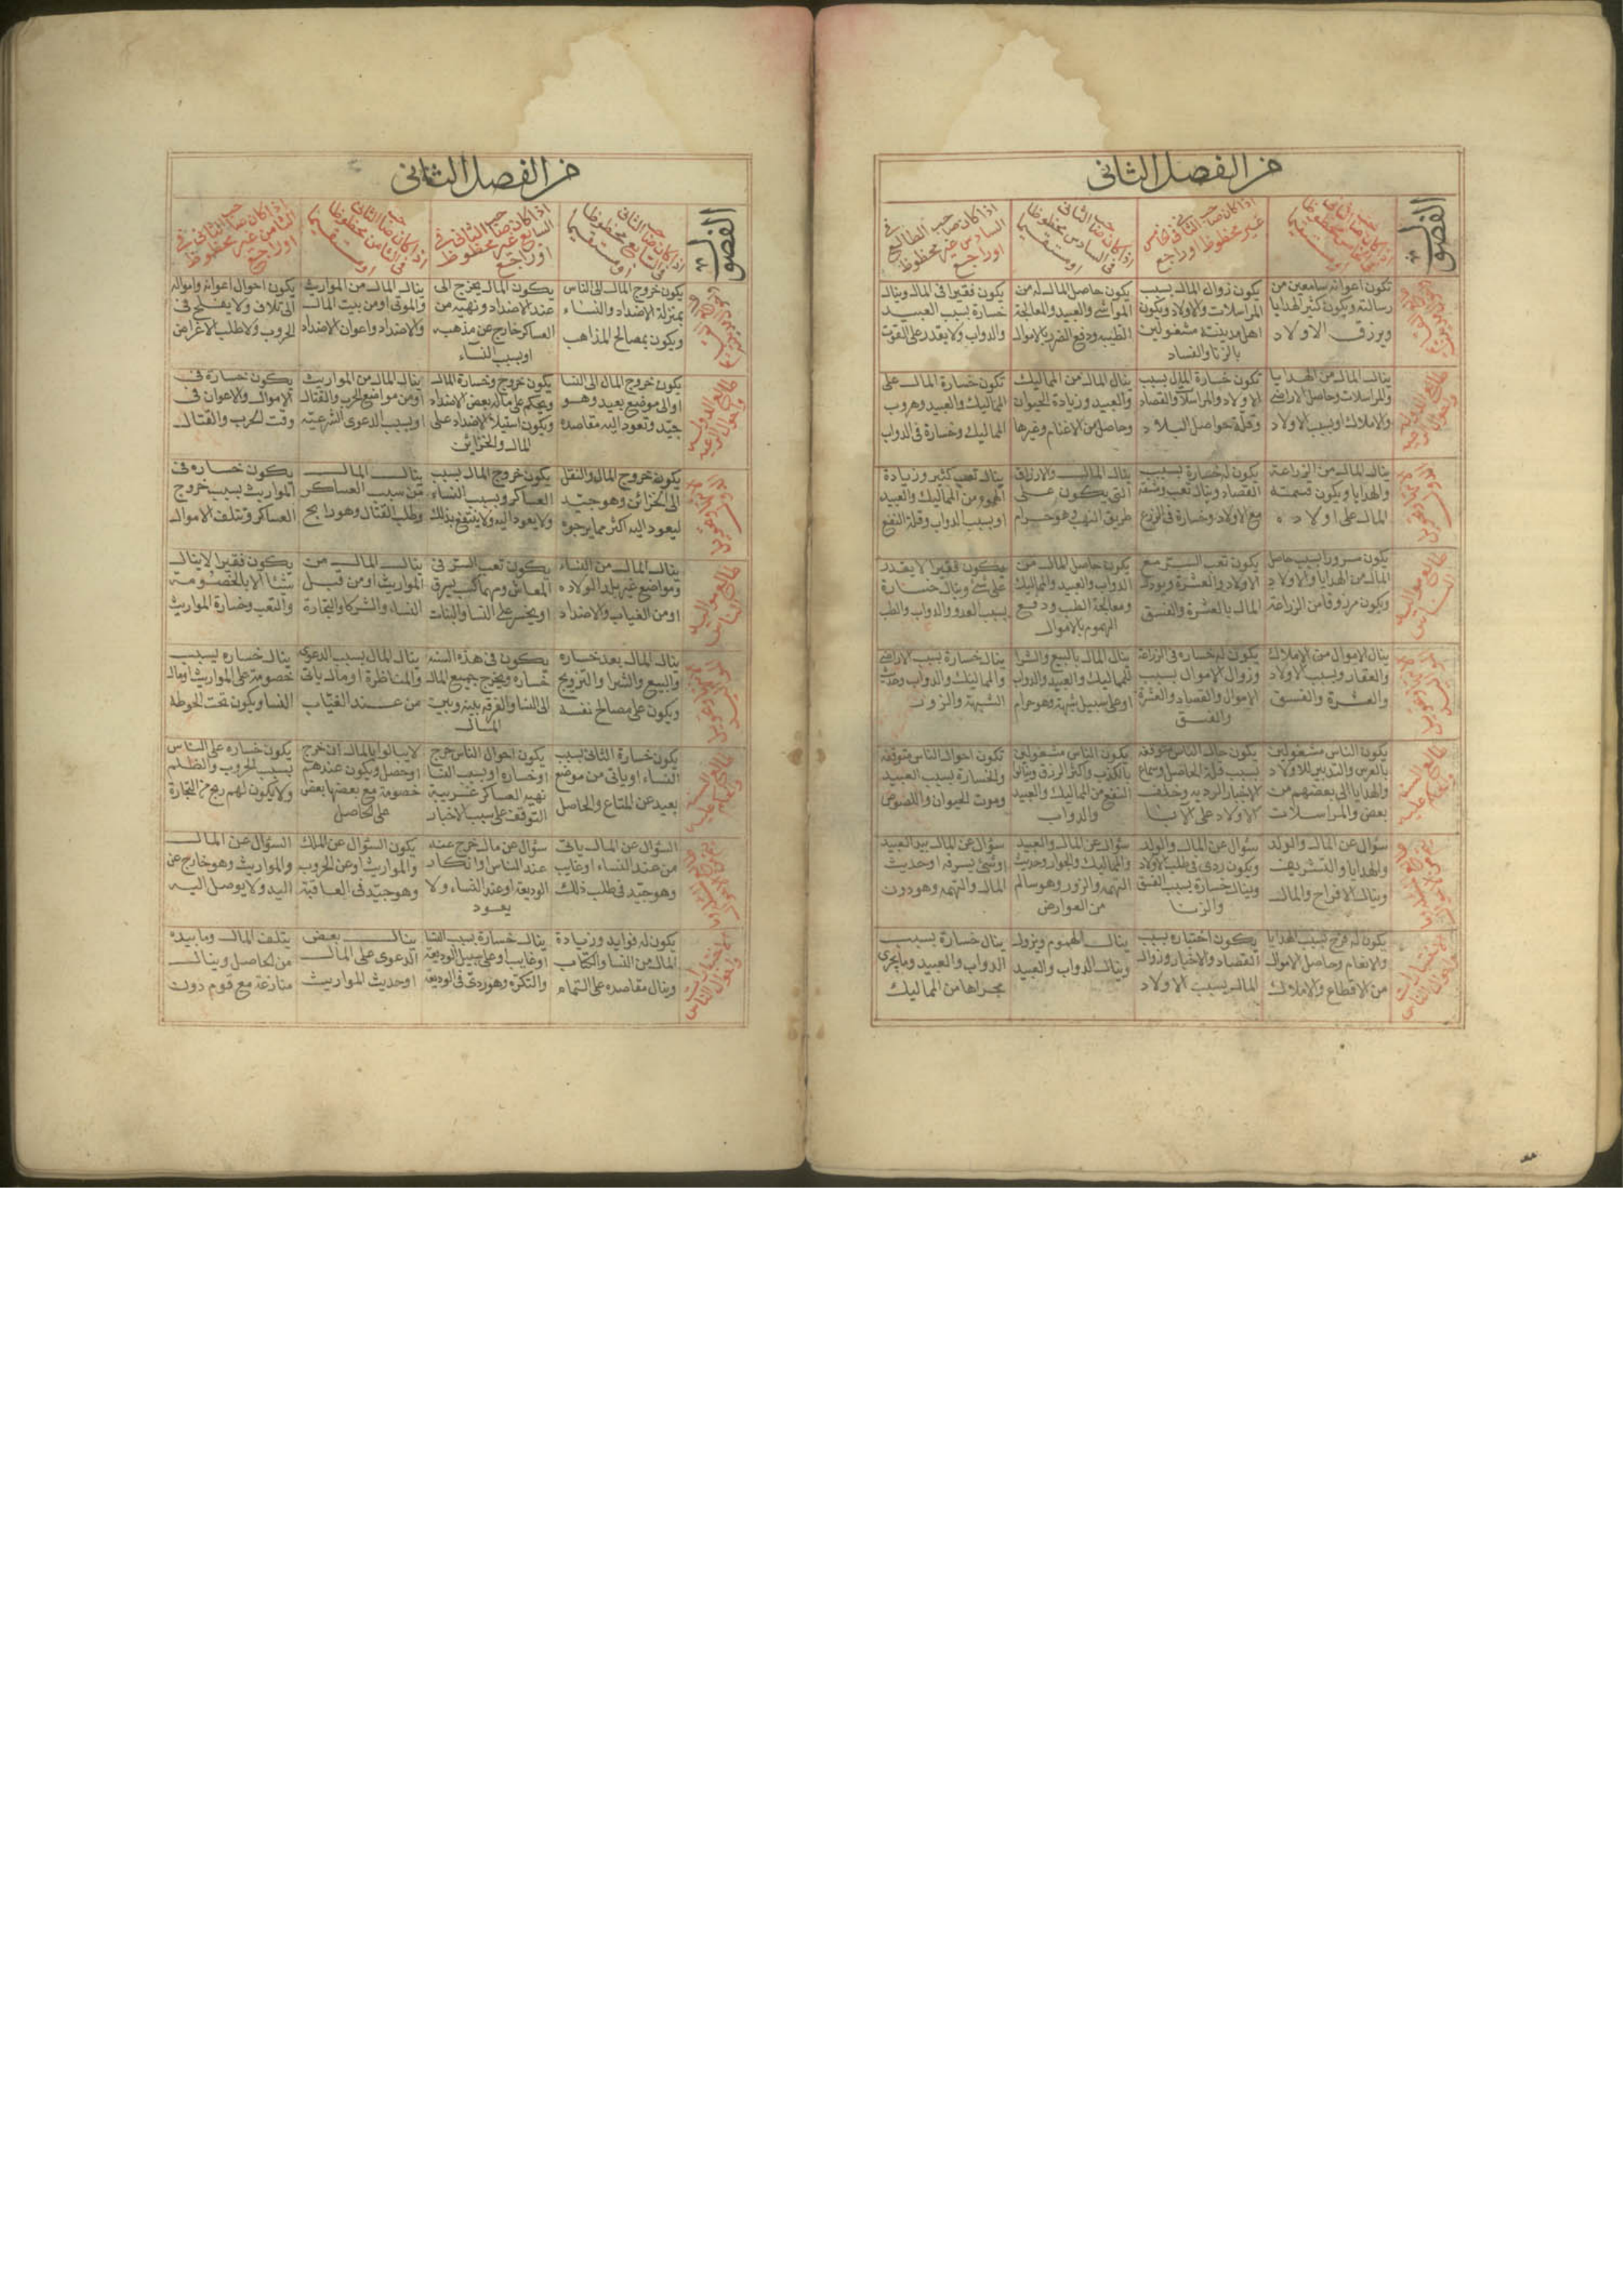 من الفصل الثاني
الفصول
اذا كان صاحب الثاني في الخامس
غير محظوظ او راجع
اذا كان صاحب الثاني
في السادس محظوظا
او مستقيما
اذا كان صاحب الطالع في
السادس غير محظوظ
او راجع
تكون اعوانه سامعين من
رسالته ويكون كثير الهدايا
ويرزق الاولاد
يكون زوال المال بسبب
المراسلات والاولاد ويكون
اهل مدينته مشغولين
بالزنا والفساد
يكون حاصل المال له من
المواشي والعبيد والمعالجة
الطبيه ودفع الضرر بالاموال
يكون فقيرا في المال وينال
خسارة بسبب العبيد
والدواب ولا يقدر على القوت
ينال المال من الهدايا
والمراسلات وحاصل الاراضي
والاملاك او بسبب الاولاد
تكون خسارة المال بسبب
الاولاد والمراسلات والقصاد
وقلة حواصل البلاد
ينال المال من المماليك
والعبيد وزيادة الحيوان
وحاصل من الاغنام وغيرها
تكون خسارة المال على
المماليك والعبيد وهروب
المماليك وخسارة في الدواب
ينال المال من الزراعة
والهدايا ويكون قسمته
المال على اولاده
يكون له خسارة بسبب
القصاد وينال تعب ومشقة
مع الاولاد وخسارة في الزرع
ينال المال والارزاق
التي يكون على
طريق النهب وهو حرام
ينال تعب كثير وزيادة
الهموم من المماليك والعبيد
او بسبب الدواب وقلة النفع
يكون مسرورا بسبب حاصل
المال من الهدايا والاولاد
ويكون مرزوقا من الزراعة
يكون تعب السر مع
الاولاد والعشرة ويودي
المال بالعشرة والفسق
يكون حاصل المال من
الدواب والعبيد والمماليك
ومعالجة الطب ودفع
الهموم بالاموال
يكون فقيرا لا يقدر
على شئ وينال خسارة
بسبب العدو والدواب والطب
ينال الاموال من الاملاك
والعقار وبسبب الاولاد
والعشرة والفسق
يكون له خساره في الزراعة
وزوال الاموال بسبب
الاموال والقصاد والعشرة
والفسق
ينال المال بالبيع والشرا
للمماليك والعبيد والدواب
او على سبيل شبهة وهو حرام
ينال خسارة بسبب الاراضي
والمماليك والدواب وحديث
الشبهة والزور
يكون الناس مشغولين
بالفرس والتدبير للاولاد
والهدايا الى بعضهم من
بعض والمراسلات
يكون حال الناس متوقفة
بسبب قلة الحاصل وسماع
الاخبار الرديه وخلف
الاولاد على الآبا
يكون الناس مشغولين
بالكذب واكثر الرزق وينالوا
النفع من المماليك والعبيد
والدواب
تكون احوال الناس متوقفة
والخسارة بسبب العبيد
وموت الحيوان واللصوص
سؤال عن المال والولد
والهدايا والتشريف
وينال الافراح والمال
سؤال عن المال والولد
ويكون ردى في طلب الاولاد
وينال خسارة بسبب الفسق
والزنا
سؤال عن المال والعبيد
والمماليك والجوار وحديث
التهمه والزور وهو سالم
من العوارض
سؤال عن المال بيد العبيد
او شئ يسرقه او حديث
المال والتهمه وهو دون
يكون له فرج بسبب الهدايا
والانعام وحاصل الاموال
من الاقطاع والاملاك
يكون اختياره بسبب
القصاد والاخبار وزوال
المال بسبب الاولاد
ينال الهموم ويزول
وينال الدواب والعبيد
ينال خسارة بسبب
الدواب والعبيد وما يجري
مجراها من المماليك
من الفصل الثاني
الفصول
اذا كان صاحب الثاني
في السابع محظوظا
او مستقيما
اذا كان صاحب الثاني في
السابع غير محظوظ
او راجع
اذا كان صاحب الثاني
في الثامن محظوظا
او مستقيما
اذا كان صاحب الثاني في
الثامن غير محظوظ
او راجع
يكون خروج المال الى الناس
بمنزلة الاضداد والنساء
ويكون بمصالح المذاهب
يكون المال يخرج الى
عند الاضداد ونهبه من
العساكر خارج عن مذهبه
او بسبب النساء
ينال المال من المواريث
والموتى او من بيت المال
والاضداد واعوان الاضداد
يكون احوال اعوانه وامواله
الى تلاف ولا يفلح في
الحروب ولا طلب الاغراض
يكون خروج المال الى النسا
او الى موضع بعيد وهو
جيد وتعود اليه مقاصده
يكون خروج وخسارة المال
ويحكم على ماله بعض الاضداد
ويكون استيلا الاضداد على
المال والخزائن
ينال المال من المواريث
او من مواضع الحرب والقتال
او بسبب الدعوى الشرعيه
يكون خسارة في
الاموال والاعوان في
وقت الحرب والقتال
يكون خروج المال والنقل
الى الخزائن وهو جيد
ليعود اليه اكثر مما يرجوه
يكون خروج المال بسبب
العساكر وبسبب النساء
ولا يعود اليه ولا ينتفع بذلك
ينال المال
من سبب العساكر
وطلب القتال وهو رابح
يكون خساره في
المواريث بسبب خروج
العساكر وتتلف الاموال
ينال المال من النساء
ومواضع غير بلد الولاده
او من الغياب والاضداد
يكون تعب السر في
المعاش ومهما كسب يسرق
او يخسر على النسا والبنات
ينال المال من
المواريث او من قبل
النساء والشركا والتجارة
يكون فقيرا لا ينال
شيئا الا بالخصومة
والتعب وخسارة المواريث
ينال المال بعد خساره
والبيع والشرا والتزويج
ويكون على مصالح نفسه
يكون في هذه السنه
خساره ويخرج جميع المال
الى النسا والفرقه بينه وبين
المال
ينال المال بسبب الدعوى
والمناظرة او مال ياتي
من عند الغياب
ينال خساره بسبب
خصومة على المواريث او مال
النسا ويكون تحت الحوطه
يكون خسارة الثاني بسبب
النساء او ياتي من موضع
بعيد عن المتاع والحاصل
يكون احوال الناس حرج
او خساره او بسبب النسا
نهب العساكر غريبة
التوقف على سبب الاخبار
لا يبالوا بالمال ان خرج
او حصل ويكون عندهم
خصومة مع بعضها بعض
على الحاصل
يكون خساره على الناس
بسبب الحروب والظلم
ولا يكون لهم ربح من التجارة
السؤال عن المال ياتي
من عند النساء او غايب
وهو جيد في طلب ذلك
سؤال عن مال خرج عنه
عند الناس وانكار
الوديعة او عند النساء ولا
يعود
يكون السؤال عن الملك
والمواريث او عن الحروب
وهو جيد في العاقبة
السؤال عن المال
والمواريث وهو خارج عن
اليد ولا يوصل اليه
يكون له فوايد وزيادة
المال من النسا والكتاب
وينال مقاصده على التمام
ينال خسارة بسبب النسا
او غايب او على سبيل الوديعة
والتكره وهو ردئ في الوديعة
ينال بعض
الدعوى على المال
او حديث المواريث
يتلف المال وما بيده
من الحاصل وينال
منازعة مع قوم دون